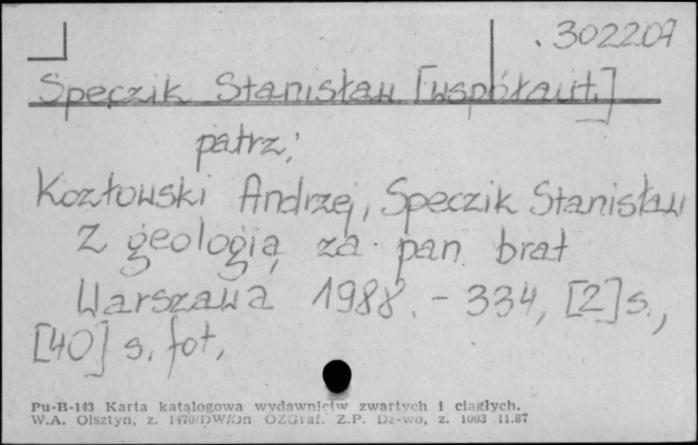 302207
Speczik Stanisław [współaut.]
patrz:
Kozłowski Andrzej, Speczik Stanisław
Z geologią za pan brat
Warszawa 1988. - 334, [2] s.,
[40] s. fot,
Pu-B-143 Karta katalogowa wydawnictw zwartych i ciągłych.
W.A. Olsztyn, z. 1470/DW/On OZGraf. Z.P. Dz-wo, z. 1003 11.87